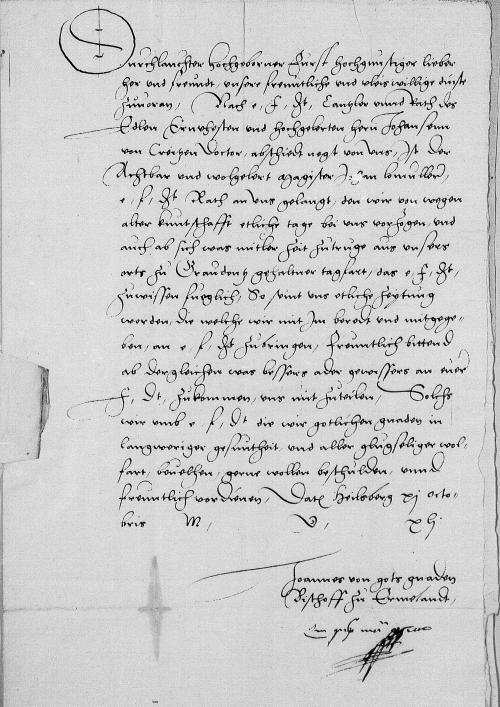 Durchlauchter hochgeborner Furst hochgunstiger lieber
her und freundt, unsere freuntliche und vleis willige dinste
zuvoran, Nach e, f, dt, Cantzler unnd Rath des
Edlen Ernvhesten und hochgelerten hern Johansenn
von Creitzen Doctor, abschiedt negst von uns, Ist der
Achtbar und wolgelert Magister Johan
e, f, dt Rath an uns gelangt, den wir von wegen
alter kuntschafft etliche tage bei uns vorzogen, und
auch, ab sich was mitler zeit zutruge aus unsers
orts zu Graudentz gehaltner tagfart, das e, f, dt,
zuwissen fuglich, So seint uns etliche zeytung
worden, die welche wir mit Im beredt und mitgege-
ben, an e, f, dt zubringen, freuntlich bittend
ab dergleichen was bessers ader gewissers an euer
f, dt, zukommen, uns mit zuteilen, Solchs
wir umb e, f, dt die wir gotlichen gnaden in
langweriger gesuntheit und aller glugseliger wol-
fart, bevelhen, gerne wollen beschulden, unnd
freuntlich vordienen, Datt Heilsberg xj octo-
bris M, D, xlj
Joannes von gots gnaden
Bischoff zu Ermelandt,